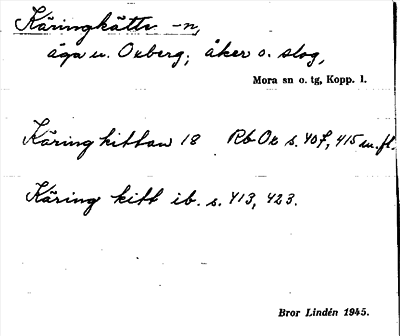 Käringkätte -n,
äga u. Oxberg; åker o. slog,
Mora sn o. tg, Kopp. l.
Käringkittan 18 Rb Ox s. 407, 415 m.fl.
Käring kitt ib. s. 413, 423.
Bror Lindén 1945.